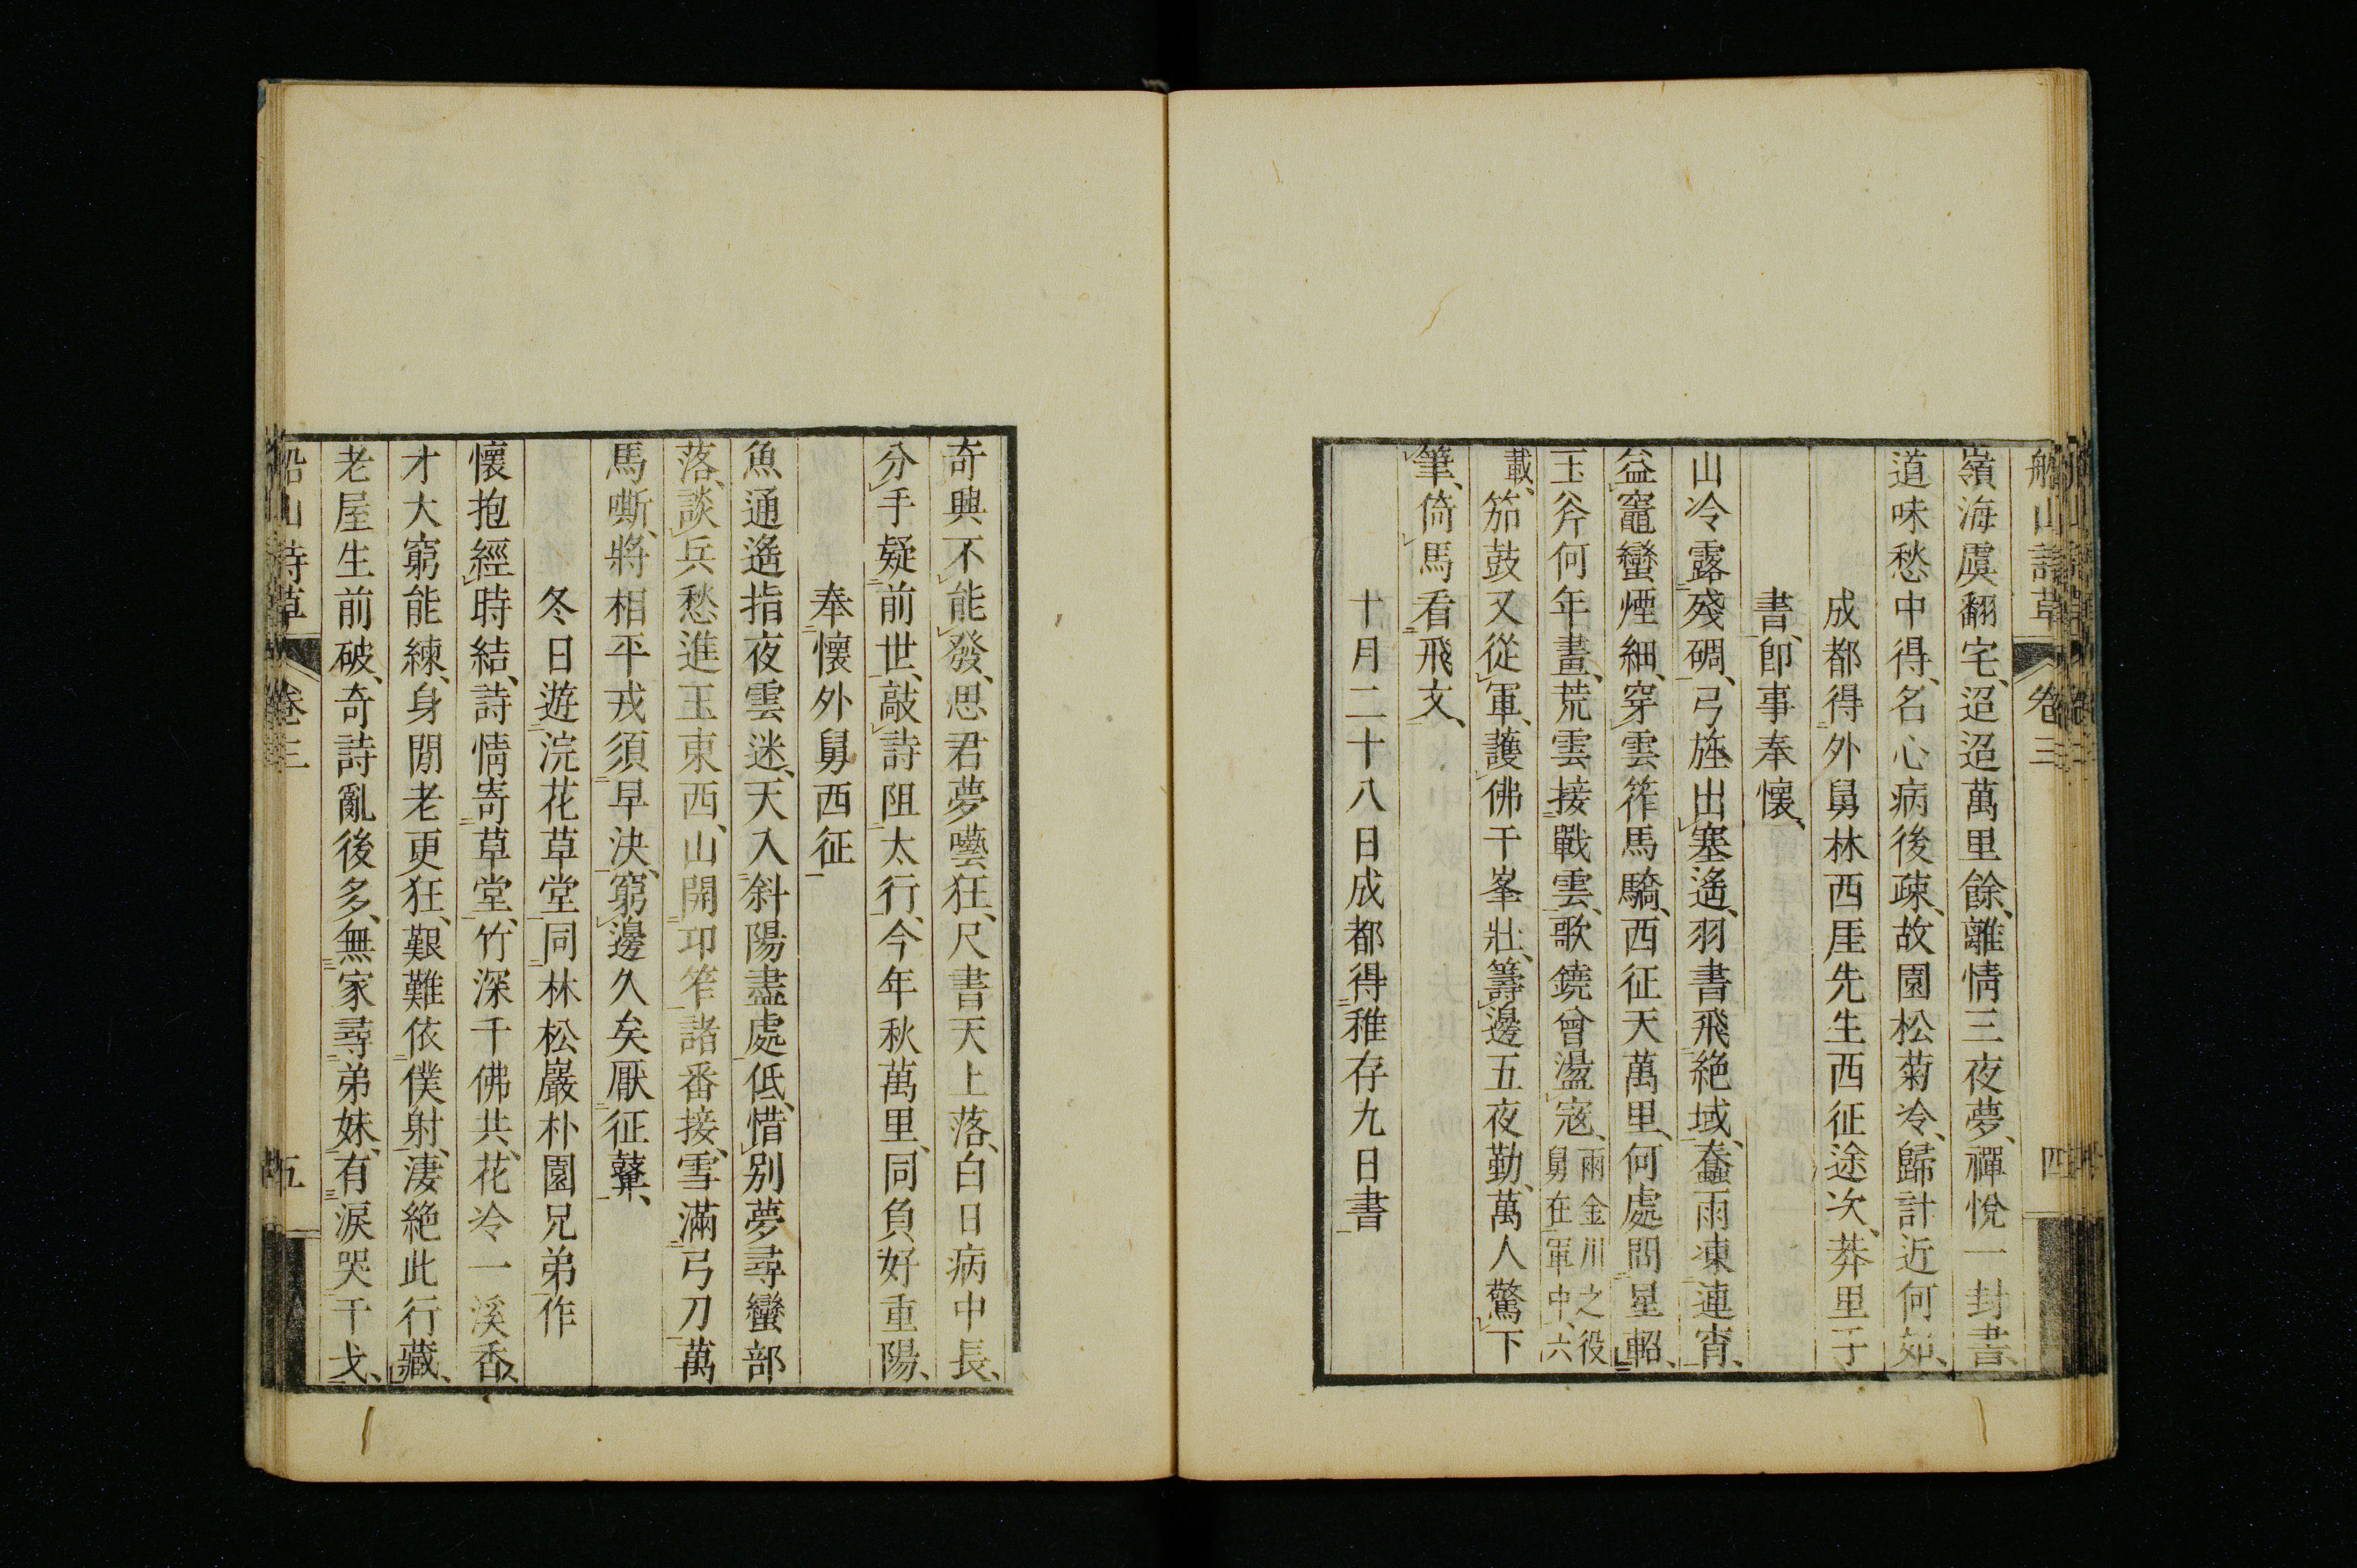 船山詩草 卷三 四
嶺海虞翻宅、迢迢萬里餘、離情三夜夢、禪悅一封書、
道味愁中得、名心病後疎、故園松菊冷、歸計近何如、
成都得外舅林西厓先生西征途次、莽里子
書、即事奉懷、
山冷露殘碉、弓旌出塞遙、羽書飛絶域、蠢雨凍連宵、
益竈蠻煙細、穿雲筰馬驕、西征天萬里、何處問星軺、
玉斧何年畫、荒雲接戰雲、歌鐃曾盪寇、兩金川之役舅在軍中、六
載、笳鼓又從軍、護佛千峯壯、籌邊五夜勤、萬人驚下
筆、倚馬看飛文、
十月二十八日成都得稚存九日書
奇興不能發、思君夢囈狂、尺書天上落、白日病中長、
分手疑前世、敲詩阻太行、今年秋萬里、同負好重陽、
奉懷外舅西征
魚通遙指夜雲迷、天入斜陽盡處低、惜别夢尋蠻部
落、談兵愁進玉東西、山開卭筰諸番接、雪滿弓刀萬
馬嘶、將相平戎須早決、窮邊久矣厭征鼙、
冬日遊浣花草堂同林松巖朴園兄弟作
懷抱經時結、詩情寄草堂、竹深千佛共、花冷一溪香、
才大窮能練、身閒老更狂、艱難依僕射、淒絶此行藏、
老屋生前破、奇詩亂後多、無家尋弟妹、有淚哭干戈、
船山詩草 卷三 五